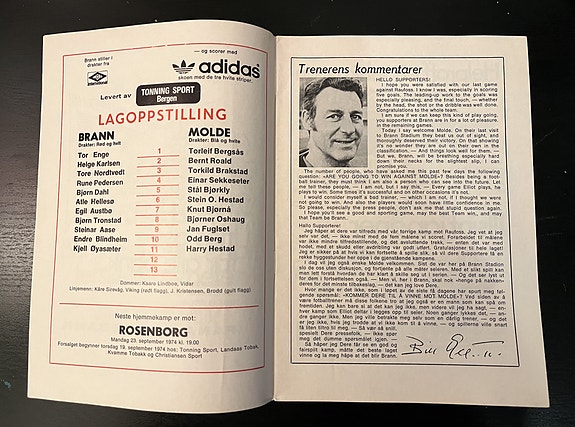 Brann stiller i
drakter fra
umbro
International
— og scorer med
adidas
skoen med de tre hvite striper
Levert av
TONNING SPORT
Bergen
LAGOPPSTILLING
BRANN
Drakter: Rød og hvit
MOLDE
Drakter: Blå og hvite
Tor Enge 1 Torleif Bergsås
Helge Karlsen 2 Bernt Roald
Tore Nordtvedt 3 Torkild Brakstad
Rune Pedersen 4 Einar Sekkeseter
Bjørn Dahl 5 Stål Bjørkly
Atle Hellesø 6 Stein O. Hestad
Egil Austbø 7 Knut Bjørnå
Bjørn Tronstad 8 Bjarne Oshaug
Steinar Aase 9 Jan Fuglset
Endre Blindheim 10 Odd Berg
Kjell Øyasæter 11 Harry Hestad
12
13
Dommer: Kaare Lindboe, Vidar
Linjemenn: Kåre Sirevåg, Viking (rødt flagg), J. Kristensen, Brodd (gult flagg)
Neste hjemmekamp er mot:
ROSENBORG
Mandag 23. september 1974 kl. 19.00
Forsalget begynner torsdag 19. september 1974 hos: Tonning Sport, Landaas Tobak,
Kvamme Tobakk og Christiansen Sport
Trenerens kommentarer
HELLO SUPPORTERS!
I hope you were satisfied with our last game
against Raufoss. I know I was, especially in scoring
five goals. The leading-up work to the goals was
especially pleasing, and the final touch, — whether
by the head, the shot or the dribble was well done.
Congratulations to the whole team.
I am sure if we can keep this kind of play going,
you supporters at Brann are in for a lot of pleasure,
in the remaining games.
Today I say welcome Molde. On their last visit
to Brann Stadium they beat us out of sight, and
thoroughly deserved their victory. On that showing
it's no wonder they are out on their own in the
classification. — And things look well for them. —
But we, Brann, will be breathing especially hard
down their necks for the slightest slip, I can
promise you.
The number of people, who have asked me this past few days the following
question: »ARE YOU GOING TO WIN AGAINST MOLDE»? Besides being a foot-
ball trainer, they must think I am also a person who can see into the future. Let
me tell these people, — I am not, but I say this, — Every game Elliot plays, he
plays to win. Some times it's successful and on other occasions it's not.
I would consider myself a bad trainer, — which I am not, if I thought we were
not going to win. And also the players would soon have little confidence in me.
So please, especially the press people, don't ask me that stupid question again.
I hope you'll see a good and sporting game, may the best Team win, and may
that Team be Brann.
Hallo Supporter!
Jeg håper at dere var tilfreds med vår forrige kamp mot Raufoss. Jeg vet at jeg
selv var det, — ikke minst med de fem målene vi scoret. Forarbeidet til målene
var ikke mindre tilfredsstillende, og det avsluttende trekk, — enten det var med
hodet, med et skudd eller avdribling var godt utført. Gratulasjoner til hele laget!
Jeg er sikker på at hvis vi kan fortsette å spille slik, så vil dere Supportere få en
rekke hyggestunder her oppe i de gjenstående kampene.
I dag vil jeg også ønske Molde velkommen. Sist de var her på Brann Stadion
slo de oss uten diskusjon, og fortjente på alle måter seieren. Med et slikt spill kan
man lett forstå hvordan de har klart å skille seg ut i serien. — Og det ser lyst ut
for dem i fortsettelsen også. — Men vi, her i Brann, skal nok »henge på nakken»
deres for det minste tilbakeslag, — det kan jeg love Dere.
Hvor mange er det ikke, som i løpet av de siste få dagene har spurt meg føl-
gende spørsmål: »KOMMER DERE TIL Å VINNE MOT MOLDE»? Ved siden av å
være fotballtrener må disse folkene tro at jeg også er en mann som kan spå om
fremtiden. Jeg kan bare si at det kan jeg ikke, men videre vil jeg si også, — en-
hver kamp som Elliot deltar i legges opp til seier. Noen ganger lykkes det, — an-
dre ganger ikke. Men jeg ville betrakte meg selv som en dårlig trener, — og det
er jeg ikke, hvis jeg trodde at vi ikke kom til å vinne, — og spillerne ville snart
få liten tiltro til meg. — Så vær så snill,
spesielt Dere pressefolk, — ikke spør
meg det dumme spørsmålet igjen. —
Så håper jeg Dere får se en god og
fairspilt kamp, måtte det beste laget
vinne og la meg håpe at det blir Brann.